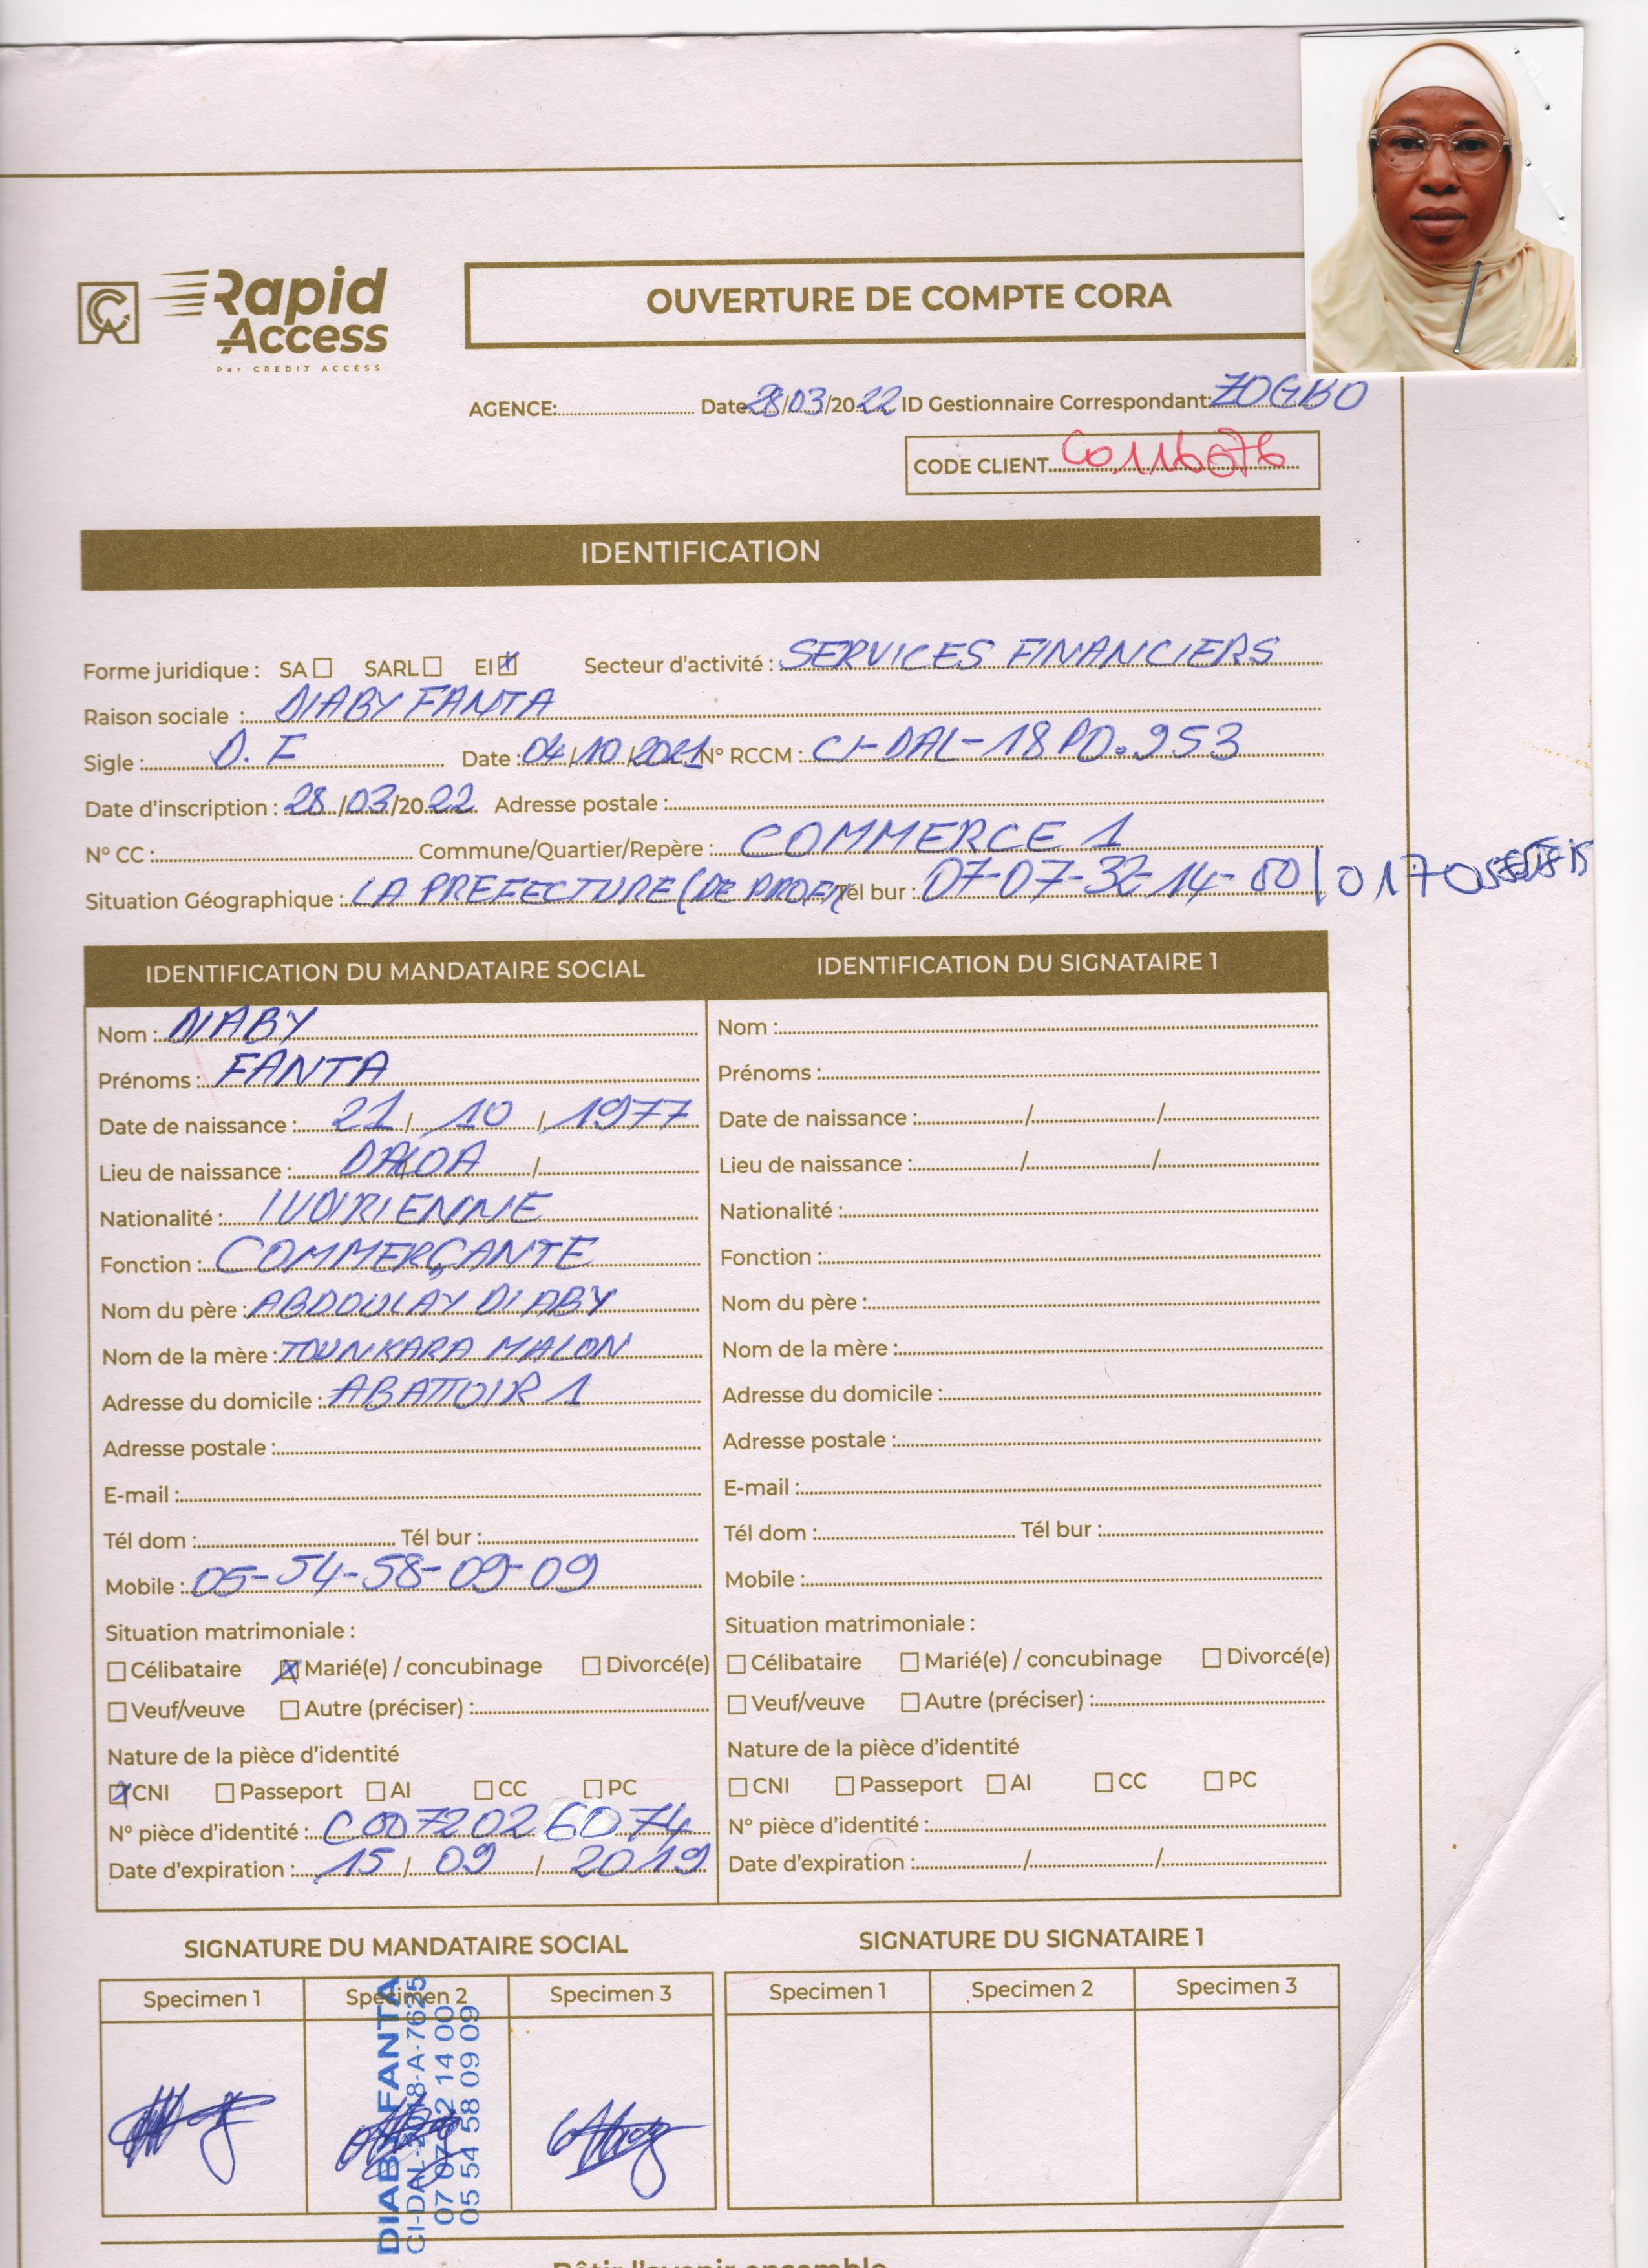 Rapid
Access
Par CREDIT ACCESS
OUVERTURE DE COMPTE CORA
AGENCE: Date 28/03/2022 ID Gestionnaire Correspondant: ZOGBO
CODE CLIENT C0116076
IDENTIFICATION
Forme juridique : SA SARL EI Secteur d'activité : SERVICES FINANCIERS
Raison sociale : DIABY FANTA
Sigle : D. F Date : 04/10/2021 N° RCCM : CI-DAL-18 PO.953
Date d'inscription : 28/03/2022 Adresse postale :
N° CC : Commune/Quartier/Repère : COMMERCE 1
Situation Géographique : LA PREFECTURE (DE Tél bur : 07-07-32-14-00/0170
IDENTIFICATION DU MANDATAIRE SOCIAL
Nom : DIABY
Prénoms : FANTA
Date de naissance : 21/10/1977
Lieu de naissance : DALOA /
Nationalité : IVOIRIENNE
Fonction : COMMERÇANTE
Nom du père : ABDOULAY DIABY
Nom de la mère : TOUNKARA MALON
Adresse du domicile : ABATTOIR 1
Adresse postale :
E-mail :
Tél dom : Tél bur :
Mobile : 05-54-58-09-09
Situation matrimoniale :
Célibataire Marié(e) / concubinage Divorcé(e)
Veuf/veuve Autre (préciser) :
Nature de la pièce d'identité
CNI Passeport AI CC PC
N° pièce d'identité : C007202 6074
Date d'expiration : 15/09/2019
IDENTIFICATION DU SIGNATAIRE 1
Nom :
Prénoms :
Date de naissance : / /
Lieu de naissance : / /
Nationalité :
Fonction :
Nom du père :
Nom de la mère :
Adresse du domicile :
Adresse postale :
E-mail :
Tél dom : Tél bur :
Mobile :
Situation matrimoniale :
Célibataire Marié(e) / concubinage Divorcé(e)
Veuf/veuve Autre (préciser) :
Nature de la pièce d'identité
CNI Passeport AI CC PC
N° pièce d'identité :
Date d'expiration : / /
SIGNATURE DU MANDATAIRE SOCIAL
Specimen 1 Specimen 2 Specimen 3
DIABY FANTA
07 07 32 14 00
05 54 58 09 09
SIGNATURE DU SIGNATAIRE 1
Specimen 1 Specimen 2 Specimen 3
Bâtir l'avenir ensemble